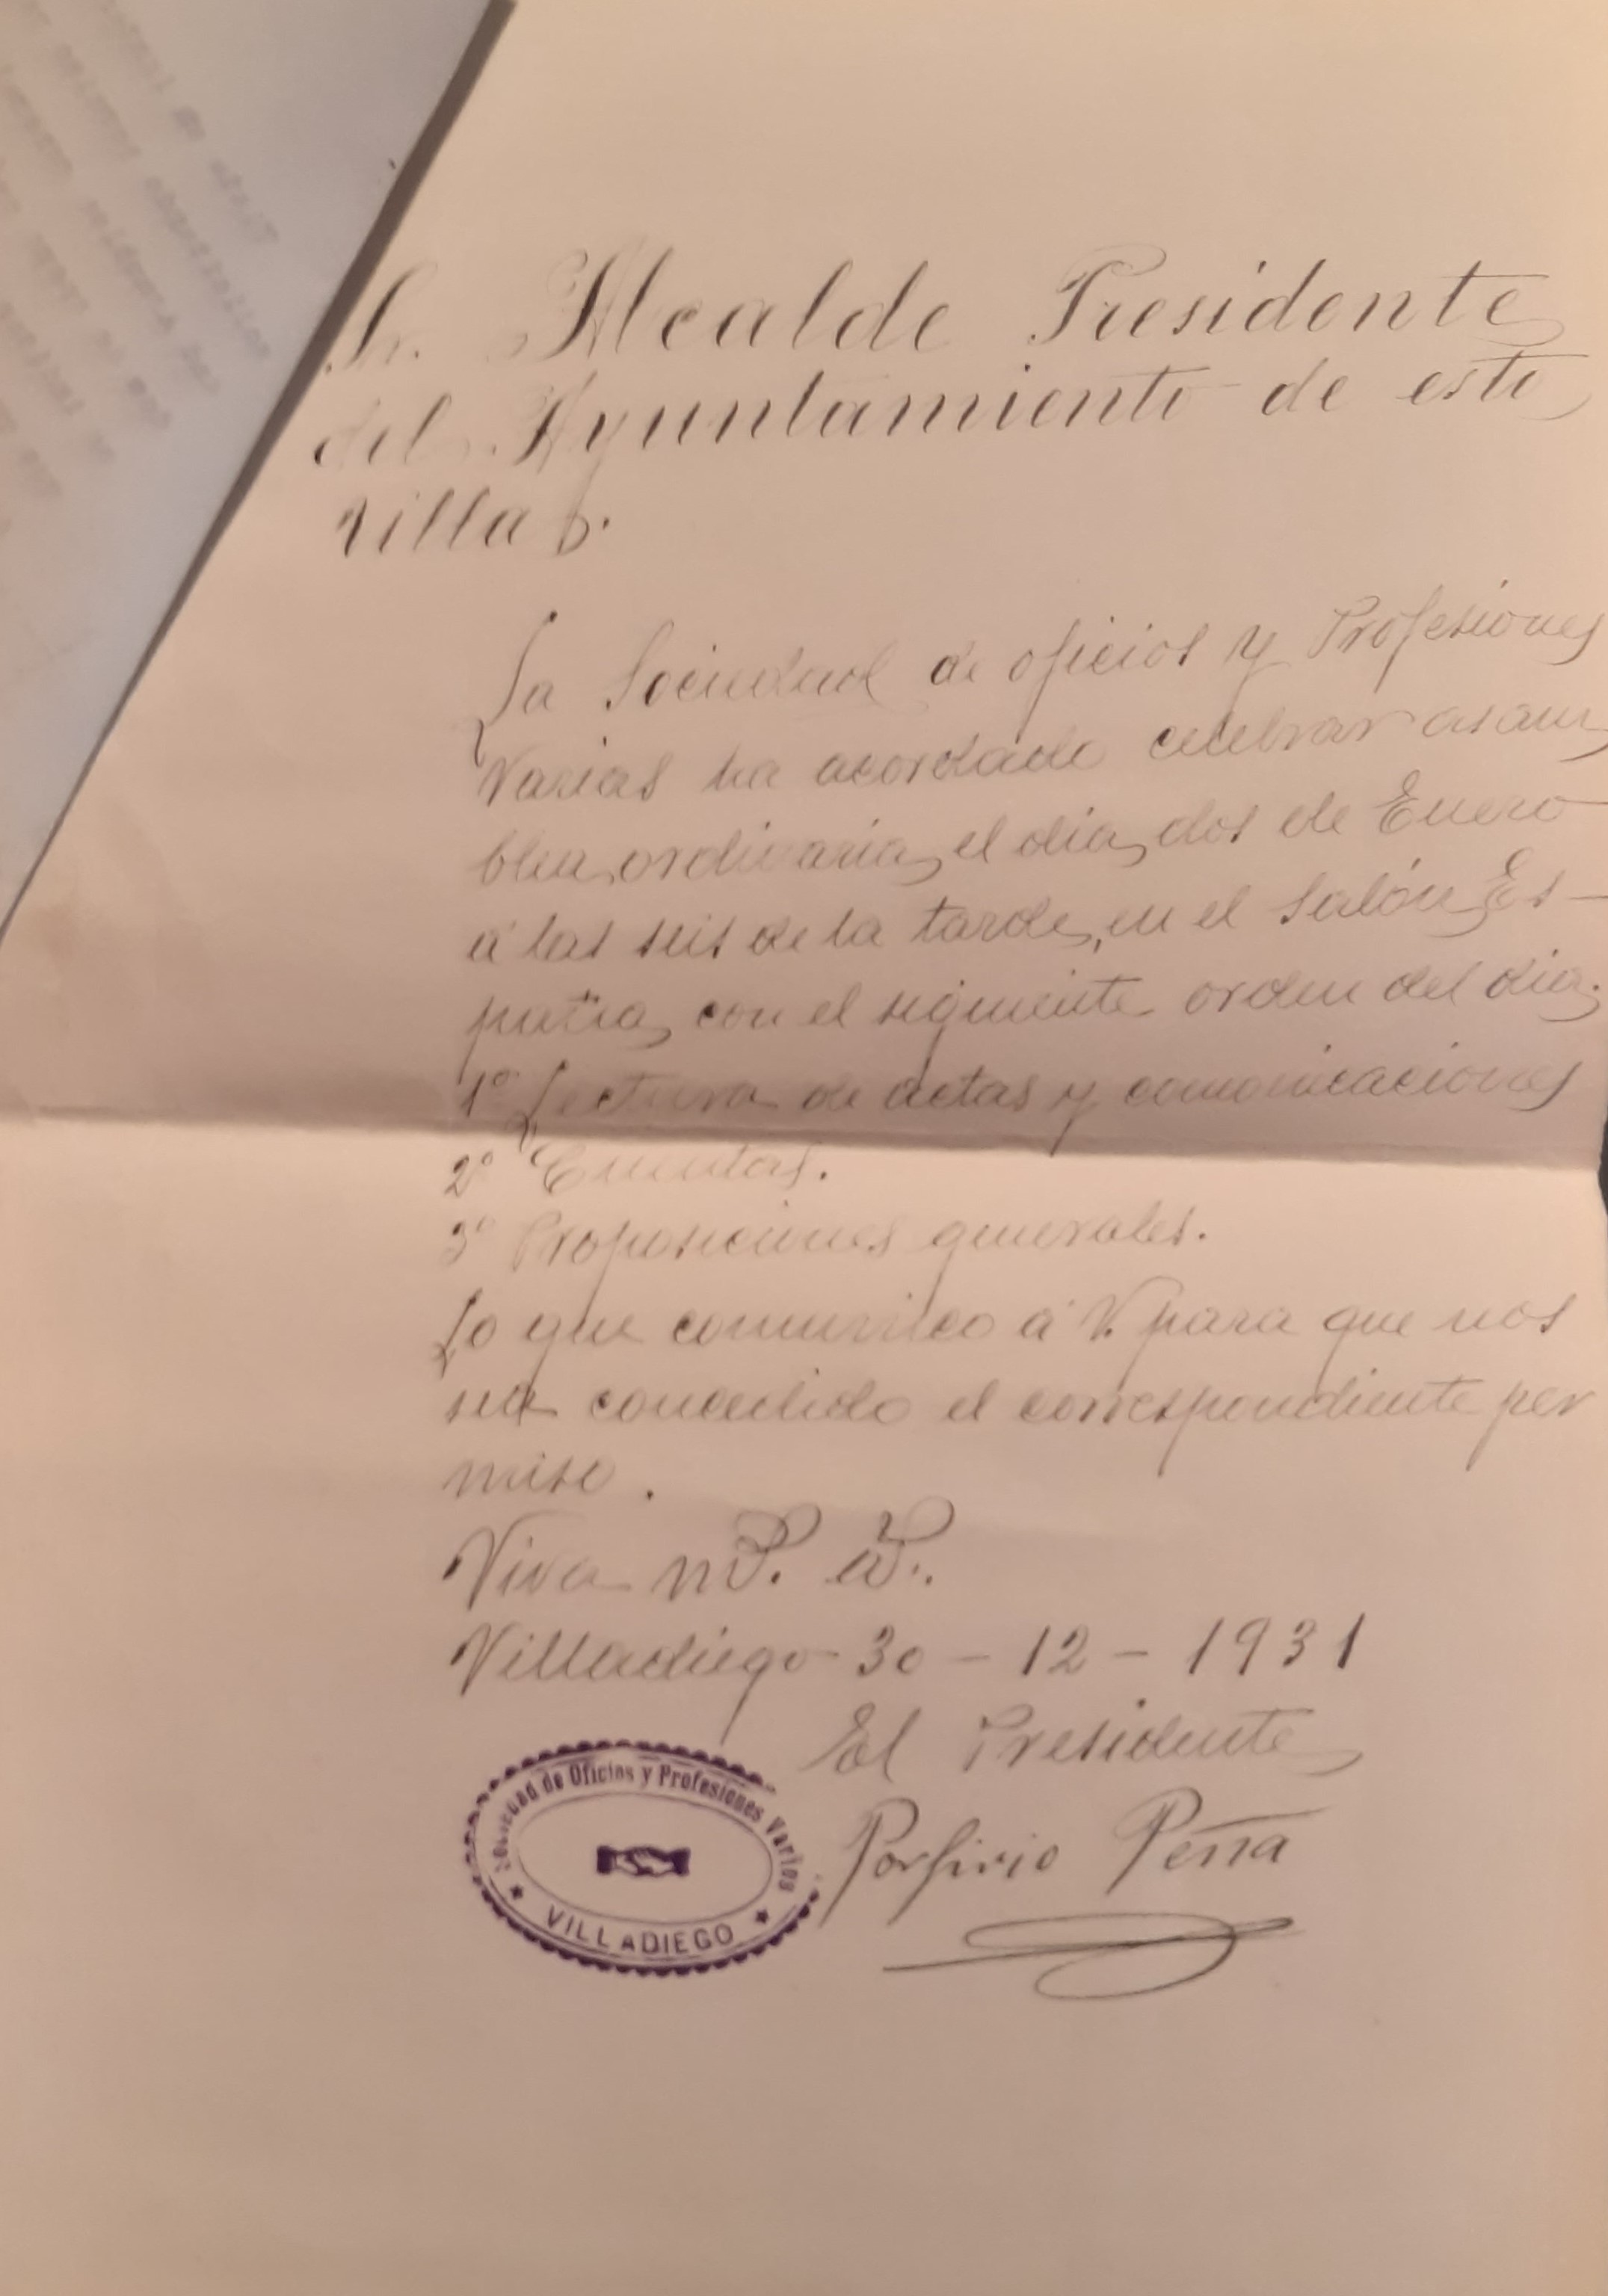 Sr. Alcalde Presidente
del Ayuntamiento de esta
villa.
La Sociedad de oficios y Profesiones
Varias ha acordado celebrar asam
blea ordinaria, el dia, dos de Enero
á las seis de la tarde, en el Salón Es-
paña, con el siguiente orden del dia.
1º Lectura de actas y comonicaciones
2º Cuentas.
3º Proposiciones generales.
Lo que comunico á V. para que nos
sea concedido el correspondiente per
miso.
Viva m.
Villadiego 30-12-1931
El Presidente
Porfirio Peña
Sociedad de Oficios y Profesiones Varios
VILLADIEGO